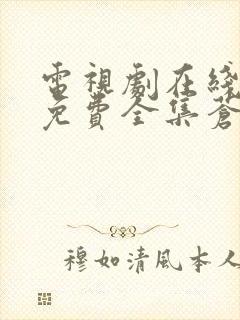 電視劇在綫
免費全集蒼
穆如清風本人